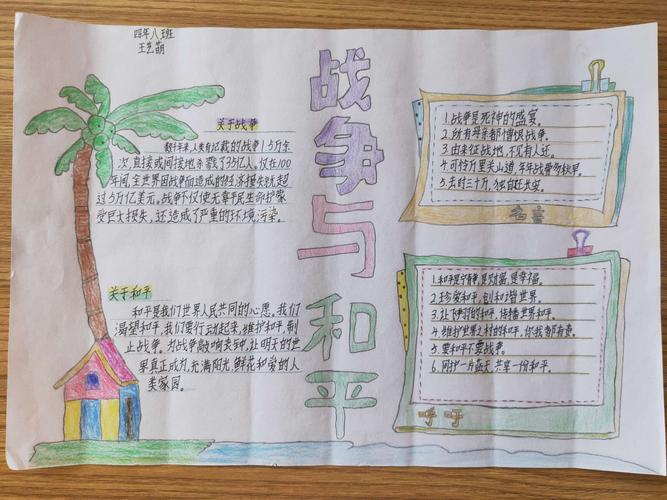 四年八班
王艺萌
战争与和平
关于战争
数千年来人类有亿载的战争1.5万余
次,直接或间接地杀戮了35亿人。仅在100
年间,全世界因战争而造成的经济损失就超
过5万亿美元。战争不仅使无辜平民生命护
受巨大损失,还造成了严重的环境污染。
关于和平
和平是我们世界人民共同的心愿。我们
渴望和平,我们要行动起来,维护和平,制
止战争。为战争敲响丧钟,让明天的世
界真正成为充满阳光、鲜花和爱的人
类家园。
1.战争是死神的盛宴。
2.所有母亲都憎恨战争。
3.由来征战地,不见有人还。
4.可怜万里关山道,年年战骨多秋草。
5.去时三十万,独自还长安。
名言
1.和平是宁静,是财富,是幸福。
2.珍爱和平,创和谐世界。
3.让飞翔的和平,传播世界和平。
4.维护世界之村的和平,你我都有责。
5.要和平不要战争。
6.同护一片蓝天,共享一份和平。
呼吁